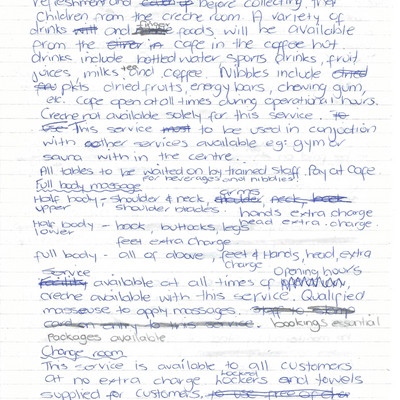 refreshment and before collecting their
children from the creche room. A variety of
drinks and foods will be available
from the cafe in the coffee hut.
drinks include bottled water, sports drinks, fruit
juices, milks, tea and coffee. Nibbles include
pkts dried fruits, energy bars, chewing gum,
etc. Cafe open at all times during operational hours.
Creche not available solely for this service. To
use This service most to be used in conjuction
with other services available eg: gym or
sauna with in the centre.
All tables to be waited on by trained staff. Pay at Cafe
for beverages and nibbles!!
Full body massage
Half body - shoulder & neck, arms
upper shoulder blades. hands extra charge
head extra charge.
Half body - back, buttocks, legs
lower feet extra charge
full body - all of above, feet & hands, head, extra
charge
Service Opening hours
facility available at all times of
creche available with this service. Qualified
masseuse to apply massages. staff to
card on entry to this service. bookings essential
packages available
Change room
This service is available to all customers
at no extra charge lockers and towels
supplied for customers, to use free of